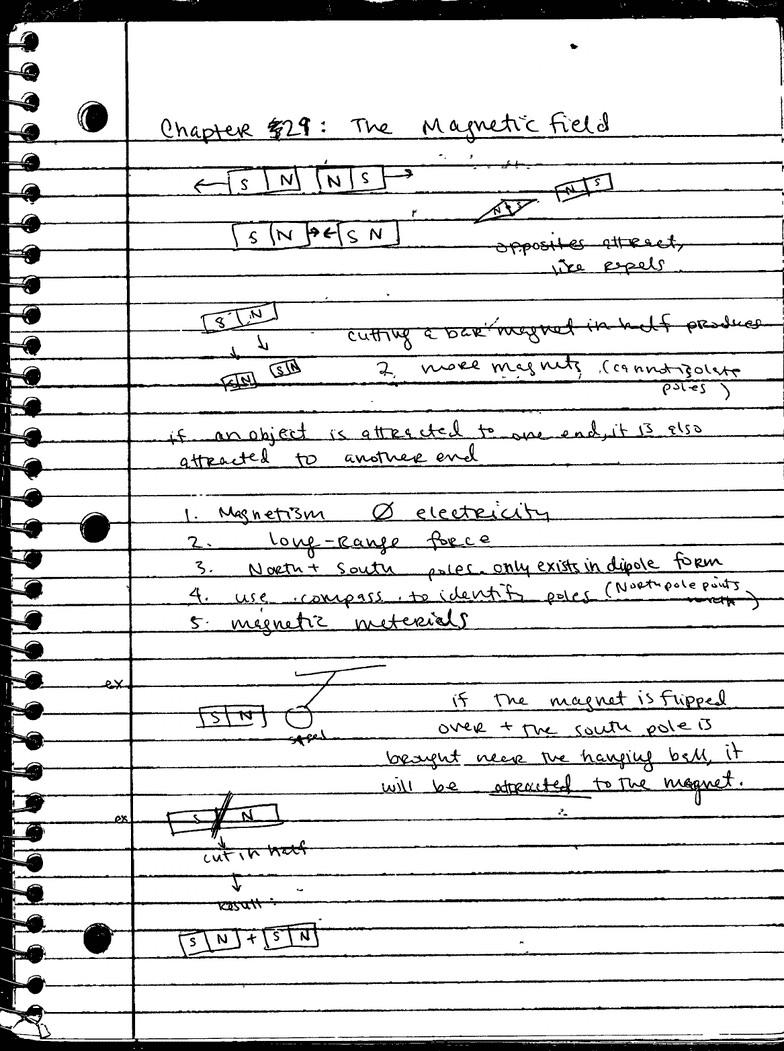 Chapter 29: The Magnetic field
S N N S
N S
N S
S N S N
opposites attract,
like repels.
S N
cutting a bar magnet in half produce
S N S N
2 more magnets (cannot isolate
poles)
if an object is attracted to one end, it is also
attracted to another end
1. Magnetism Ø electricity
2. long-Range force
3. North + South poles only exists in dipole form
4. use compass to identify poles (North pole points
north)
5. magnetic materials
ex
S N
steel
if the magnet is flipped
over + the south pole is
brought near the hanging ball, it
will be attracted to the magnet.
ex
S N
cut in half
result:
S N + S N